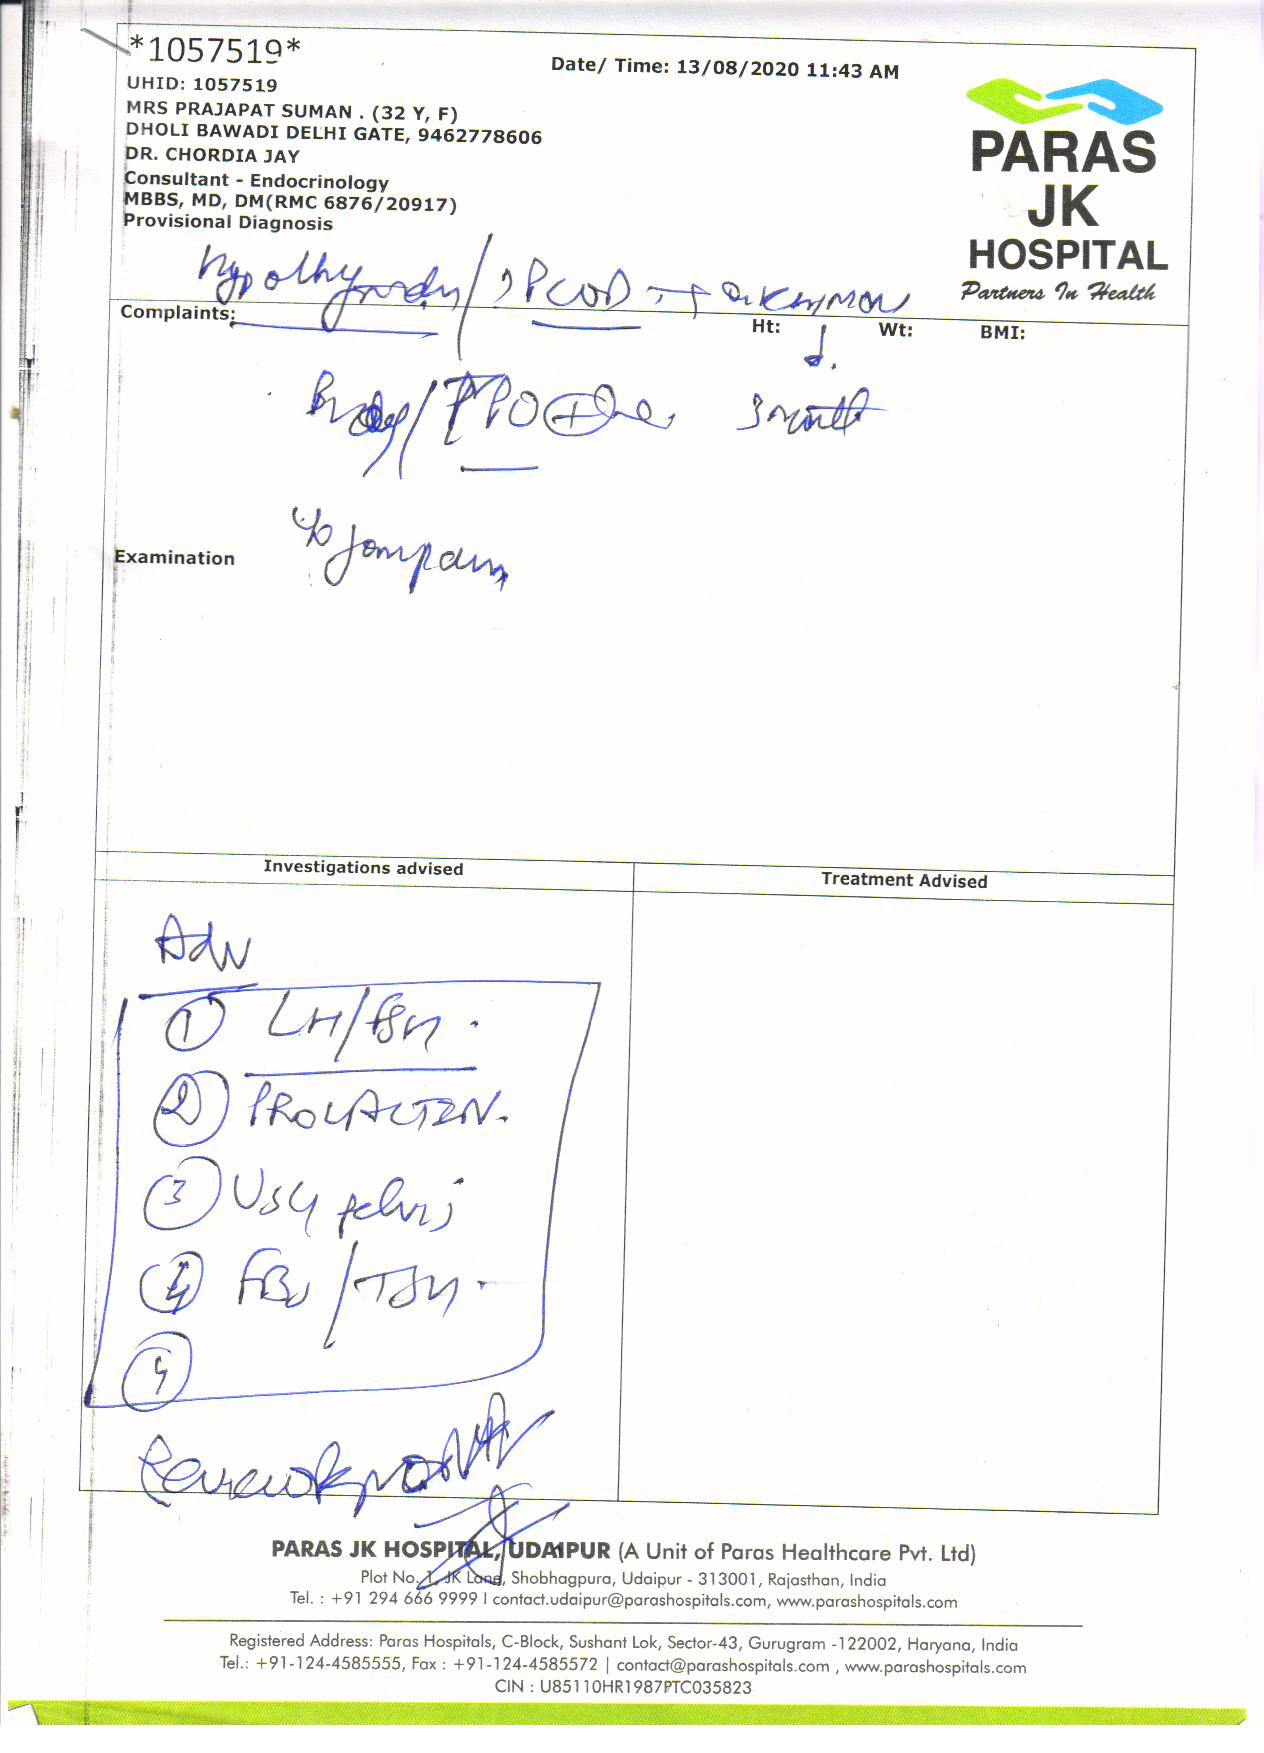 *1057519*
Date/ Time: 13/08/2020 11:43 AM
UHID: 1057519
MRS PRAJAPAT SUMAN . (32 Y, F)
DHOLI BAWADI DELHI GATE, 9462778606
DR. CHORDIA JAY
Consultant - Endocrinology
MBBS, MD, DM(RMC 6876/20917)
Provisional Diagnosis
PARAS
JK
HOSPITAL
Partners In Health
/ ? PCOD →
Complaints:
Ht: Wt: BMI:
/ TPO
c/o
Examination
Investigations advised
Treatment Advised
Adv
① LH/FSH.
② PROLACTIN.
③ USG pelvis
④ /TSH.
Review
PARAS JK HOSPITAL, UDAIPUR (A Unit of Paras Healthcare Pvt. Ltd)
Plot No. 1, JK Lane, Shobhagpura, Udaipur - 313001, Rajasthan, India
Tel. : +91 294 666 9999 I contact.udaipur@parashospitals.com, www.parashospitals.com
Registered Address: Paras Hospitals, C-Block, Sushant Lok, Sector-43, Gurugram -122002, Haryana, India
Tel.: +91-124-4585555, Fax : +91-124-4585572 | contact@parashospitals.com , www.parashospitals.com
CIN : U85110HR1987PTC035823